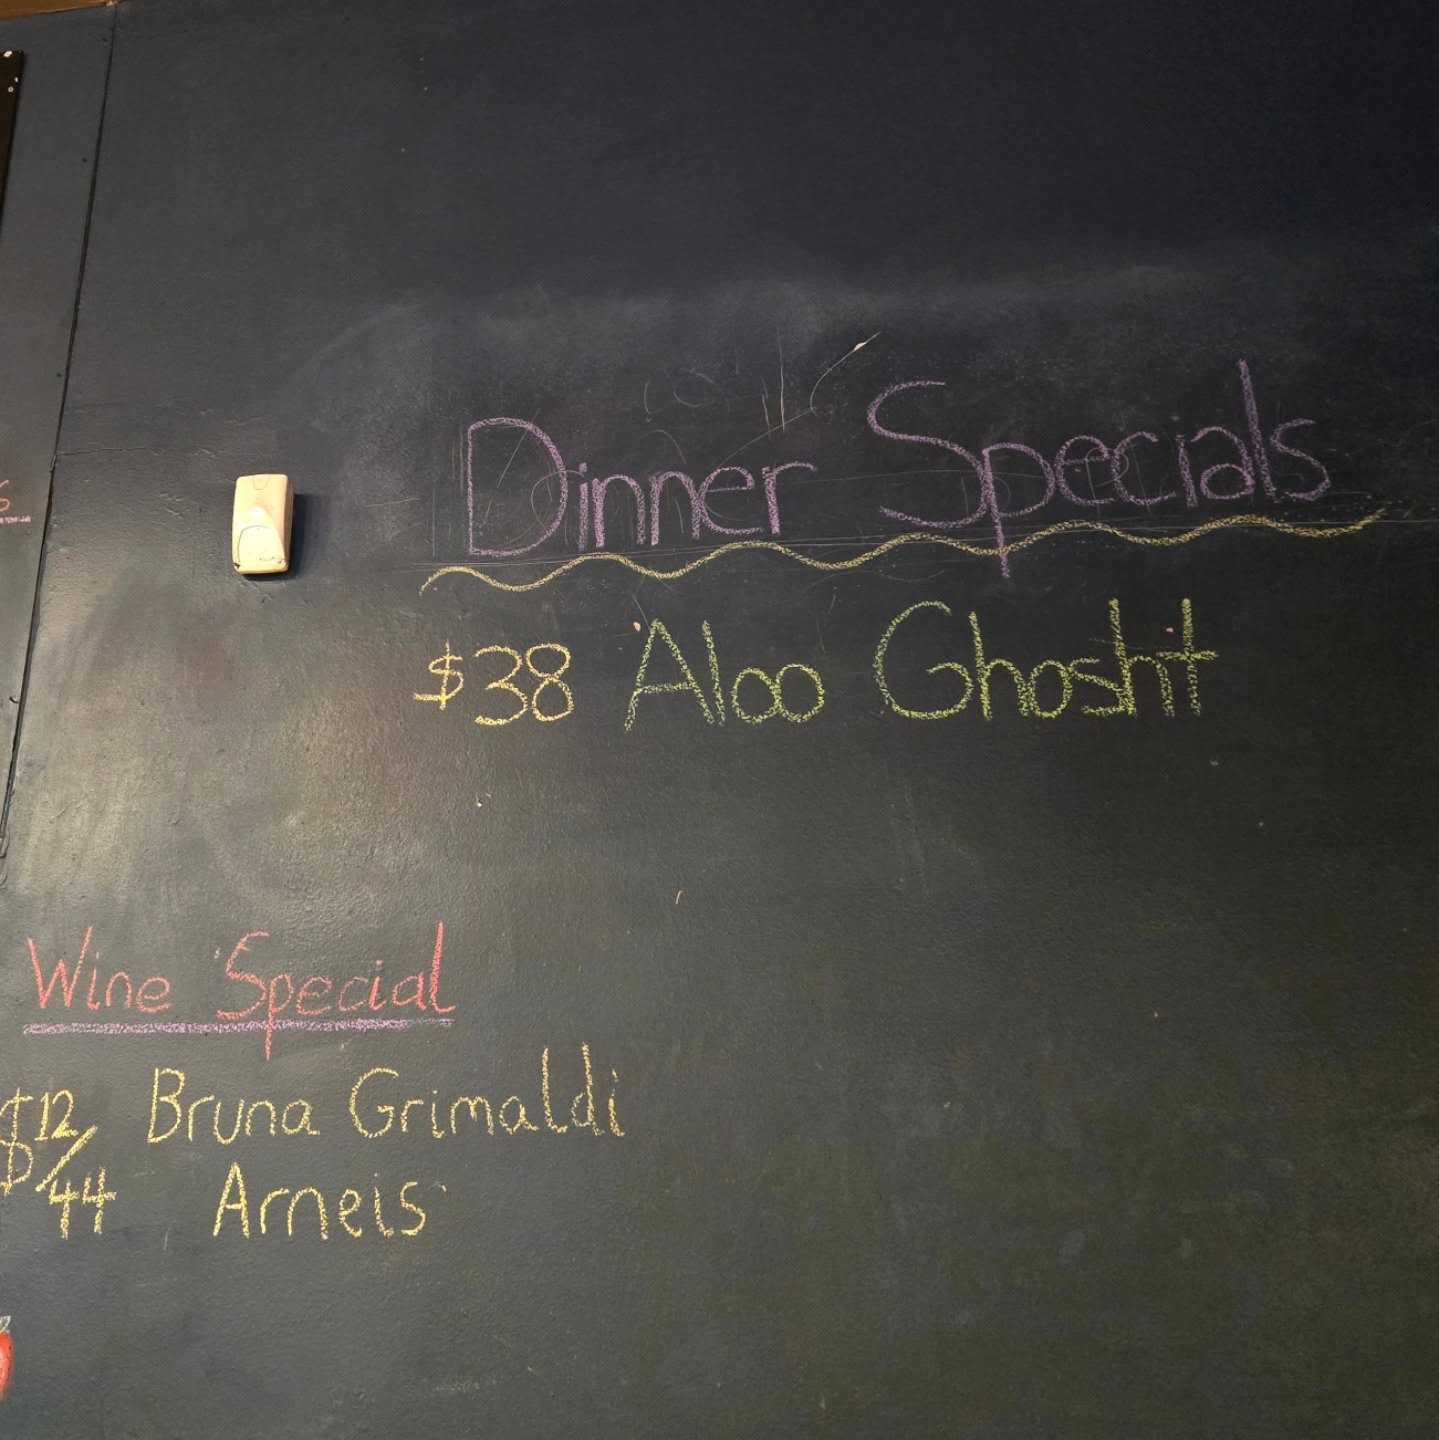 Dinner Specials
$38 Aloo Ghosht
Wine Special
$12/ Bruna Grimaldi
$44 Arneis